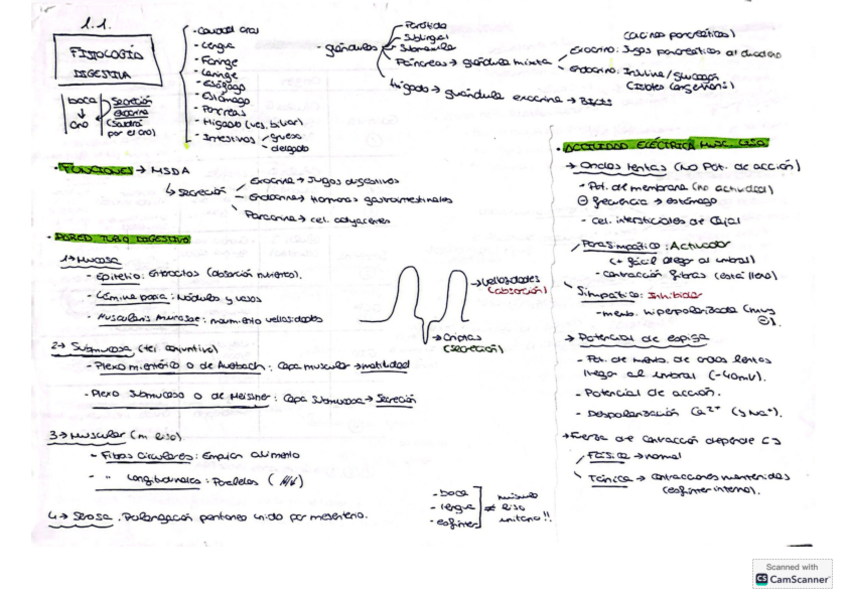 1.1.
FISIOLOGÍA
DIGESTIVA
boca
↓
ano
Secreción
exocrina
(saldrá
por el ano)
- Cavidad oral
- Lengua
- Faringe
- Laringe
- Esófago
- Estómago
- Páncreas
- Hígado (ves. biliar)
- Intestinos
grueso
delgado
- glándulas
Parótida
Sublingual
Submaxilar
Páncreas → glándula mixta
(acinos pancreáticos)
Exocrino: Jugos pancreáticos al duodeno
Endocrino: Insulina/glucagón
(Islotes Langerhans)
Hígado → glándula exocrina → Bilis
· FUNCIONES → MSDA
↳ Secreción
Exocrina → Jugos digestivos
Endocrina → Hormonas gastrointestinales
Paracrina → cel. adyacentes
· PARED TUBO DIGESTIVO
1 → Mucosa
- Epitelio: Enterocitos (absorción nutrientes).
- Lámina propia: Nódulos y vasos
- Muscularis mucosae: movimiento vellosidades
→ Vellosidades
(absorción)
→ Criptas
(secreción)
2 → Submucosa (tej conjuntivo)
- Plexo mientérico o de Auerbach: Capa muscular → motilidad
- Plexo Submucoso o de Meissner: Capa Submucosa → Secreción
3 → Muscular (m liso)
- Fibras Circulares: Empujan alimento
- " Longitudinales: Paralelas
4 → Serosa. Prolongación peritoneo unido por mesenterio.
- boca
- lengua
- esfínter
≠
músculo
liso
unitario!!
· ACTIVIDAD ELÉCTRICA MUSC. LISO
→ Ondas lentas (No Pot. de acción)
- Pot. de membrana (no actividad)
⊖ frecuencia → estómago
- Cel. intersticiales de Cajal
Parasimpático: Activador
(+ fácil llegar al umbral)
- contracción fibras (está lleno)
Simpático: Inhibidor
- memb. hiperpolarizada (muy ⊖).
→ Potencial de espiga
- Pot. de memb. de ondas lentas
llegan al umbral (-40mV).
- Potencial de acción.
- Despolarización Ca²⁺ (y Na⁺).
→ Fuerza de contracción depende
Fásica → normal
Tónica → contracciones mantenidas
(esfínter interno).
Scanned with
CS CamScanner